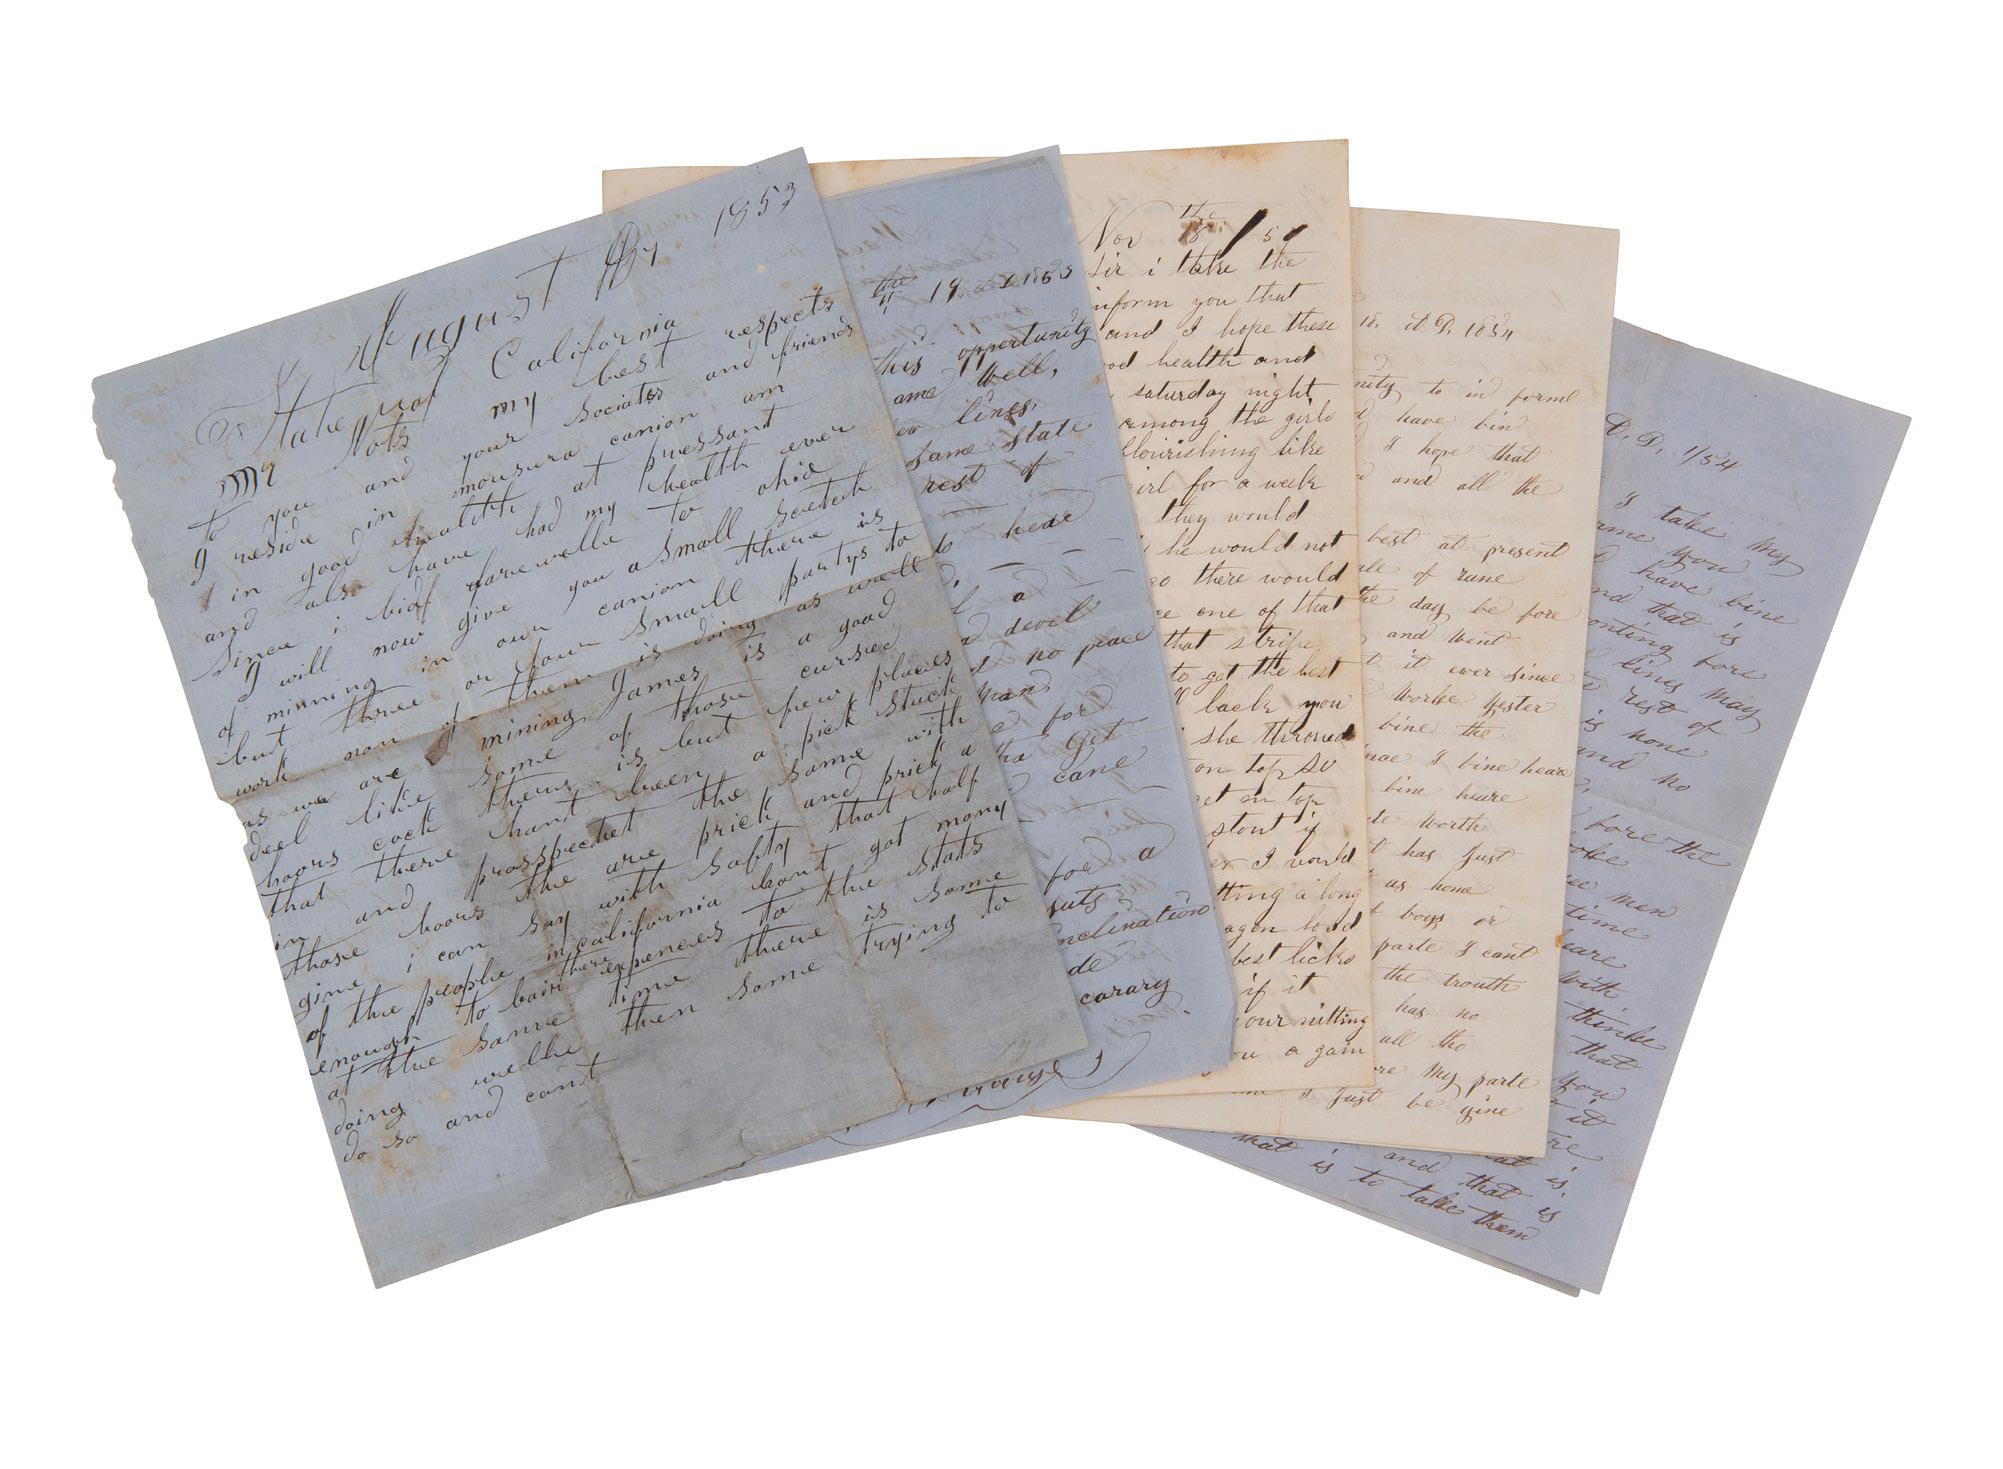 August 1853
State of California
My Nots my best respects
to you and your sociates and friends
I reside in monsura canion am
in good healith at pressant
and also have had my health ever
since i bid farewelle to ohio
I will now give you a small scetch
of minning in our canion there is
but three or four small partys to
work non of them is doing as well
as we are mining James is a good
deel like some of those cursed
hoors cock thers is but few places
that there hant been a pick stuck
in and prosspected the same with
those hoors the are prick and prick a
gine i can say with safty that half
of the people in california hant got mony
enough to bair there expences to the stats
at the same time there is some
doing welle then some trying to
do so and cant
the 19 1853
this opportunity
ame well,
ew lines,
same state
rest of
to hear
l a
a devel
d no place
man
e for
tha Get
cane
for a
guts
enclination
de
carary
Nov 18 / 54
sir i take the
inform you that
and I hope these
ood health and
saturday night
among the girls
flourishing like
girl for a week
they would
he would not
go there would
ce one of that
that stripe
to get the best
ll back you
she throwed
on top so
get on top
stout if
er I would
tting a long
agon load
best licks
if it
our sitting
you a gain
18, A D, 1854
nity to in forme
d have bin
I hope that
d and all the
best at present
ale of rane
the day be fore
and went
t it ever since
worke yester
bine the
nce I bine heare
bine heare
te worth
t has just
as home
t boys or
parte I cant
the trouth
has no
all the
ore My parte
me I just be gine
A, D, 1/54
I take my
orme you
d have bine
nd that is
onting fore
lines may
e rest of
is none
and no
fore the
ooke
ee men
time
heare
with
thinke
that
you
it
re
eat is
and that is
that is to take them